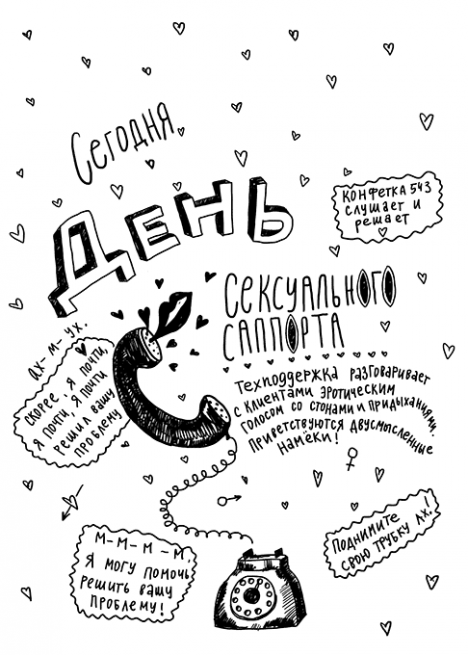 Сегодня
День
Конфетка 543
слушает и
решает
сексуального
саппорта
Техподдержка разговаривает
с клиентами эротическим
голосом со стонами и придыханиями.
Приветствуются двусмысленные
намёки!
Ах- м- ух.
Скорее, я почти,
я почти, я почти
решил вашу
проблему
м-м-м-м,
Я могу помочь
решить вашу
проблему!
Поднимите
свою трубку Ах!